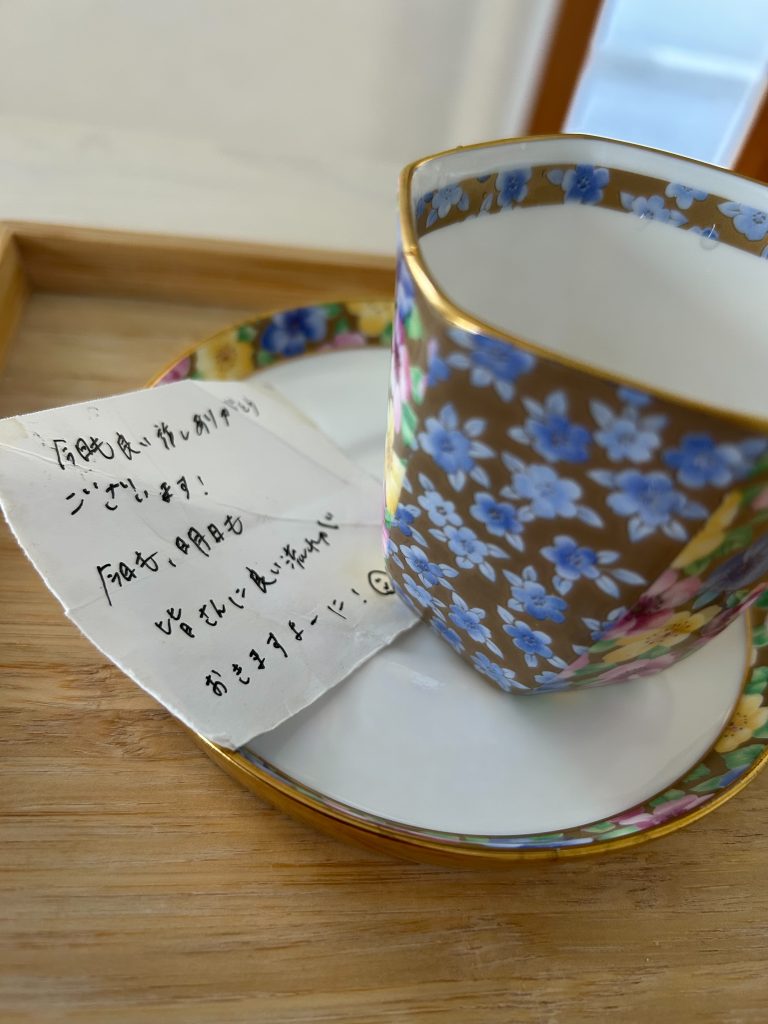 今日も良い流しありがとう
ございます!
今日も、明日も
皆さんに良い流れが
おきますよーに!